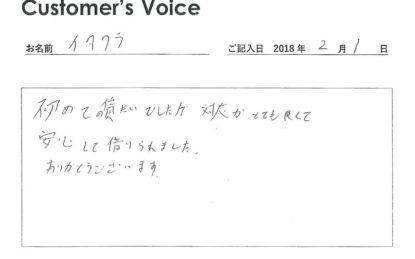 Customer's Voice
お名前 イタクラ ご記入日 2018 年 2 月 1 日
初めての賃だいでしたが 対応がとても良くて
安心して借りられました。
ありがとうございます。